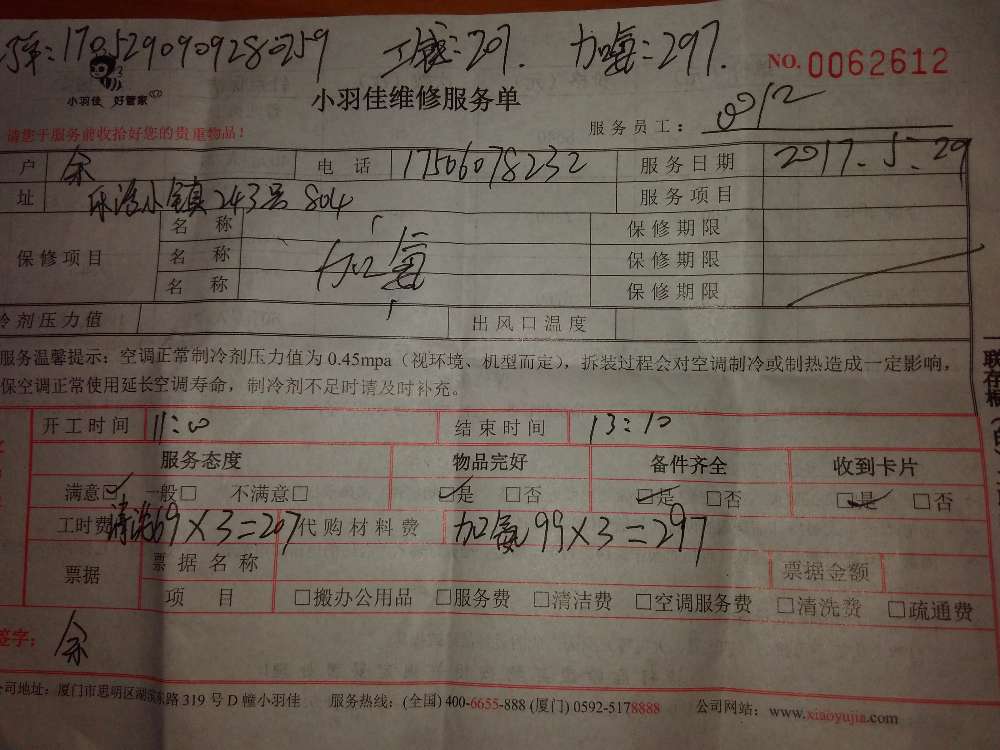 单:1705290909280259 工费:207. 加氨:297. NO.0062612
小羽佳 好管家
小羽佳维修服务单
请您于服务前收拾好您的贵重物品!
服务员工: 0912
户 余 电 话 17506078232 服务日期 2017.5.29
址 乐海小镇243号804 服务项目
保修项目 名 称 保修期限
名 称 加氨 保修期限
名 称 保修期限
冷剂压力值 出风口温度
服务温馨提示:空调正常制冷剂压力值为0.45mpa(视环境、机型而定),拆装过程会对空调制冷或制热造成一定影响,
保空调正常使用延长空调寿命,制冷剂不足时请及时补充。
开工时间 11:00 结束时间 13:10
服务态度 物品完好 备件齐全 收到卡片
满意☑ 一般□ 不满意□ ☑是 □否 ☑是 □否 ☑是 □否
工时费 清洗69×3=207 代购材料费 加氨99×3=297
票据 票据名称 票据金额
项 目 □搬办公用品 □服务费 □清洁费 □空调服务费 □清洗费 □疏通费
签字: 余
公司地址:厦门市思明区湖滨东路319号D幢小羽佳 服务热线:(全国)400-6655-888(厦门)0592-5178888 公司网站:www.xiaoyujia.com